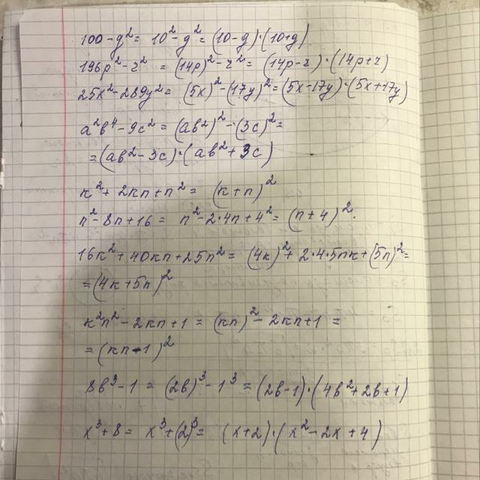 100-g²= 10²-g²=(10-g)·(10+g)
196p²-z² = (14p)²-z²= (14p-z)·(14p+z)
25x²-289y²= (5x)²-(17y)²=(5x-17y)·(5x+17y)
a²b⁴-9c²=(ab²)²-(3c)²=
=(ab²-3c)·(ab²+3c)
к²+2кn+n²= (к+n)²
n²-8n+16 = n²-2·4n+4²=(n+4)².
16к²+40кn+25n²= (4к)²+2·4·5nк+(5n)²=
=(4к+5n)²
к²n²-2кn+1 = (кn)²-2кn+1 =
=(кn-1)²
8b³-1 = (2b)³-1³=(2b-1)·(4b²+2b+1)
x³+8= x³+(2)³= (x+2)·(x²-2x+4)